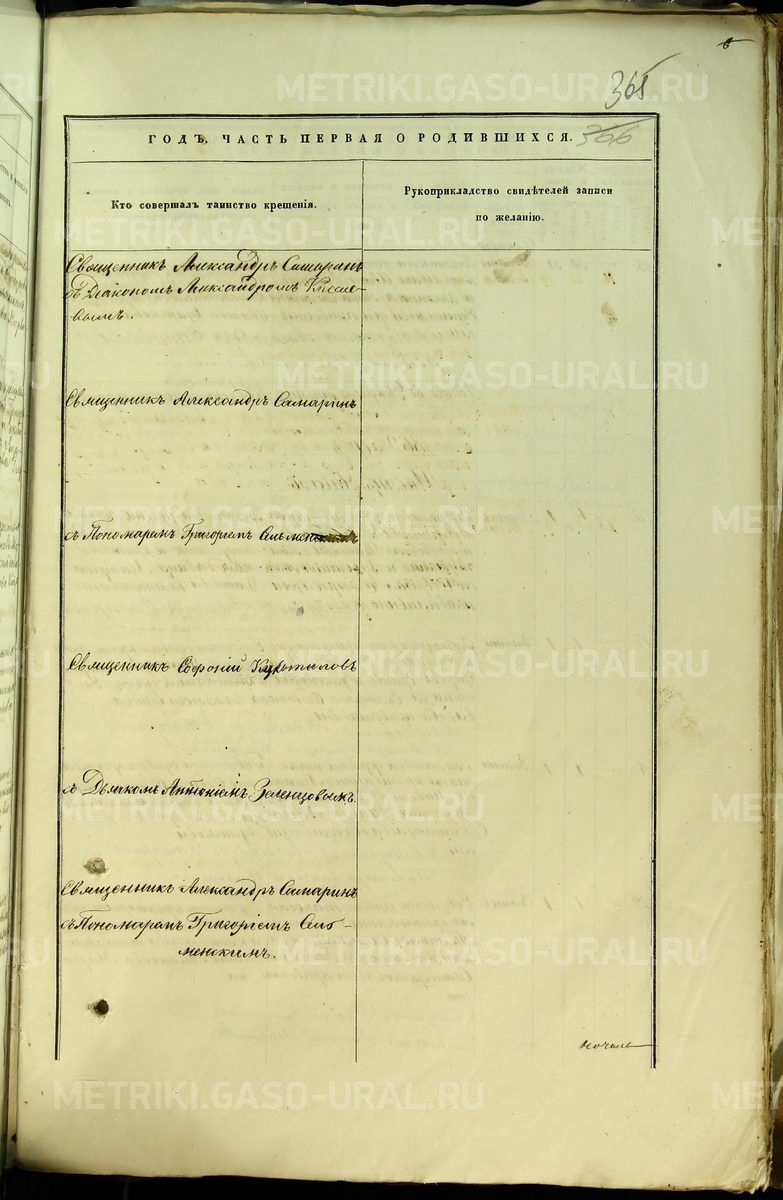 6
365
366
ГОДЪ, ЧАСТЬ ПЕРВАЯ О РОДИВШИХСЯ.
Кто совершалъ таинство крещенія.
Рукоприкладство свидѣтелей записи
по желанію.
Священникъ Александръ Самаринъ
съ Діакономъ Александромъ
вымъ.
Священникъ Александръ Самаринъ
съ Пономаремъ Григоріемъ
Священникъ Софоній
съ Дьячкомъ Антоніемъ Зеленцовымъ.
Священникъ Александръ Самаринъ
съ Пономаремъ Григоріемъ Сель-
менскимъ.
METRIKI.GASO-URAL.RU